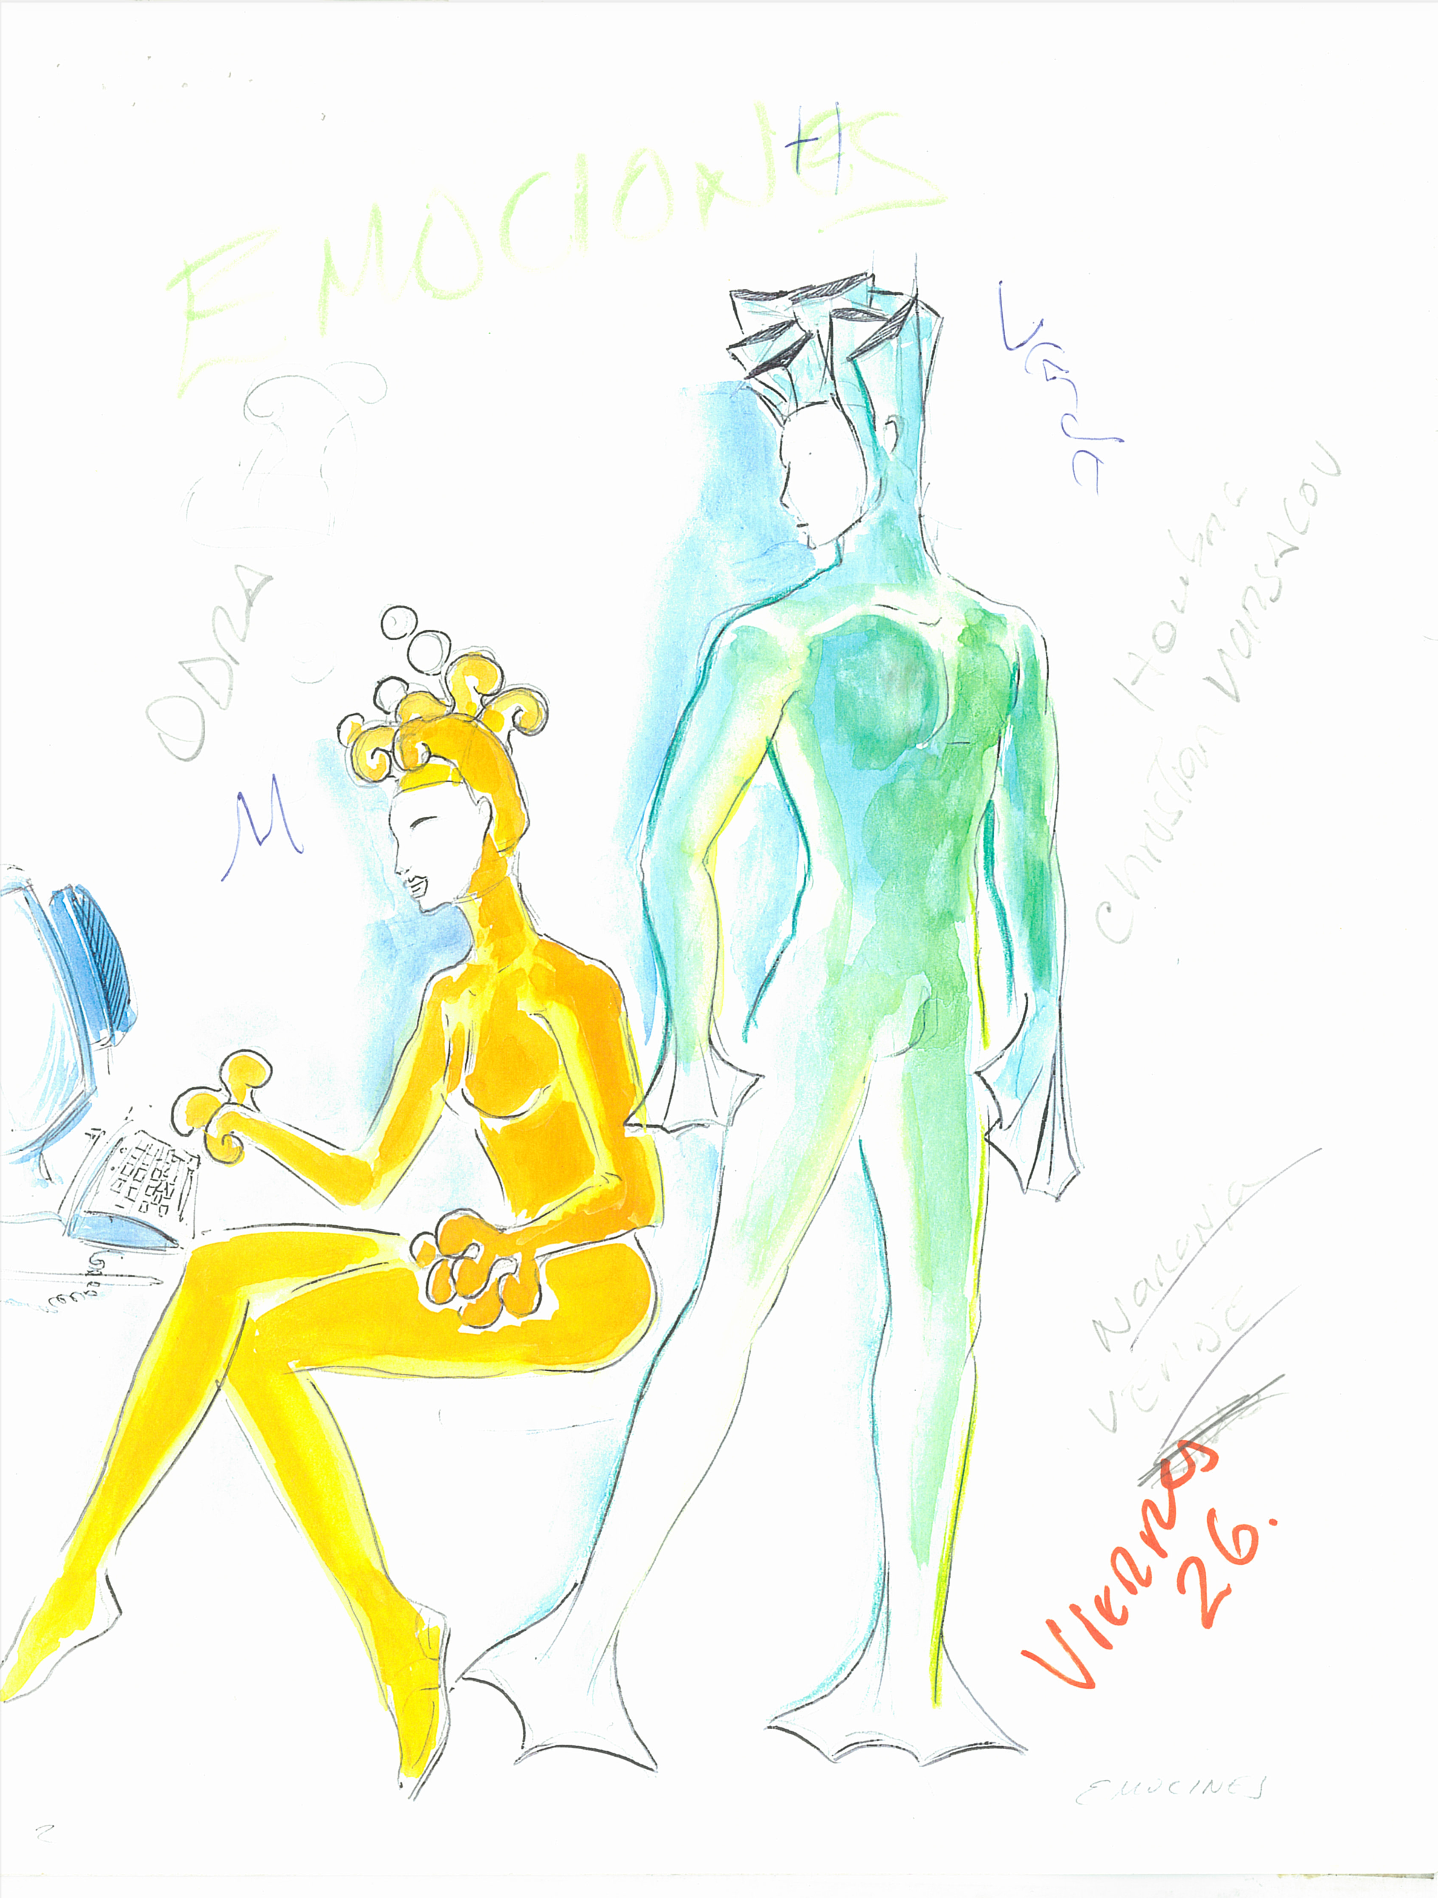 EMOCIONES
H
Verde
ODRA
M
Hombre
Christian
Naranja
VERDE
VIERNES
26.
EMOCINES
2